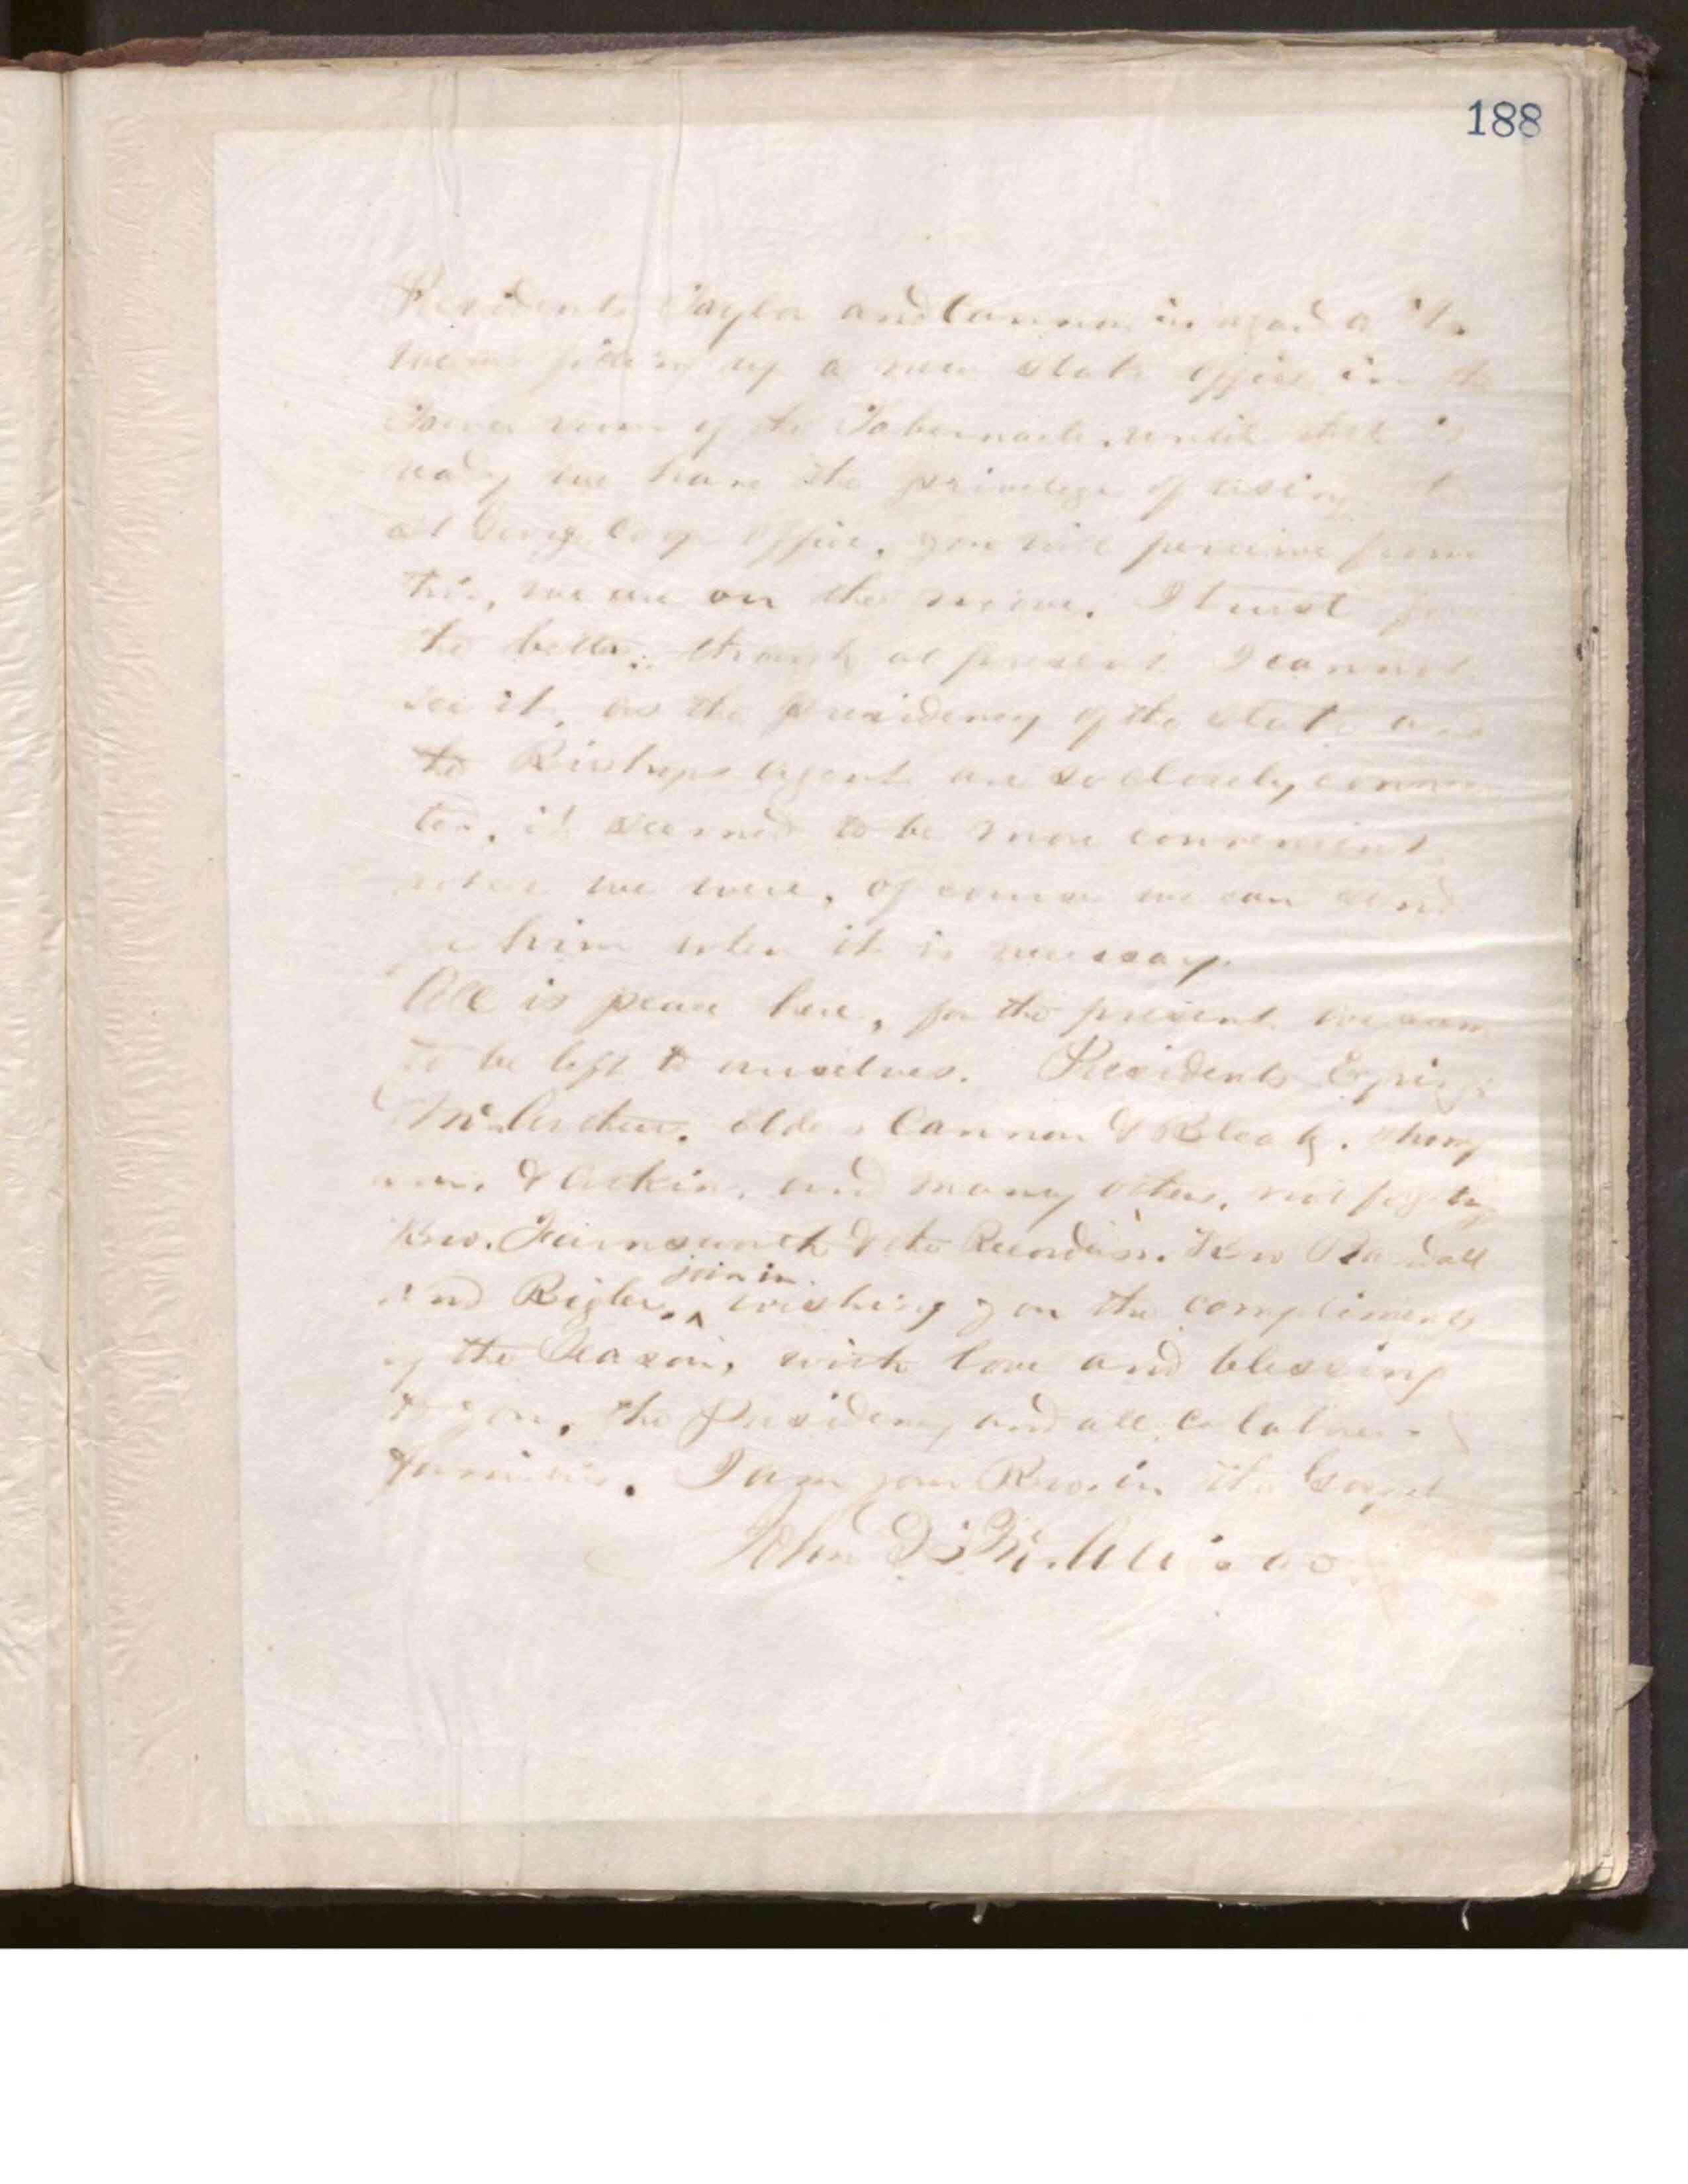 188
Presidents Taylor and Cannon in regard to it.
We are fixing up a new stake office in the
Tower room of the Tabernacle, until that is
ready we have the privilege of using the
old Coop office, you will perceive from
this, we are on the move. I trust for
the better: though at present I cannot
see it, as the presidency of the stake and
the Bishops Agent are so closely connec
ted, it seemed to be more convenient
where we were, of course we can send
for him when it is necessary.
All is peace here, for the present we seem
to be left to ourselves. Presidents Eyring
McArthur. Elders Cannon & Bleak.
& Atkin, and many others, not forgetting
Bro. Farnsworth & the Recorders. Bro Randall
and Bigler, join in wishing you the compliments
of the Season, with love and blessing
to you, the Presidency and all co laborers
& families. I am your Bro. in the Gospel
John D. T. McAllister